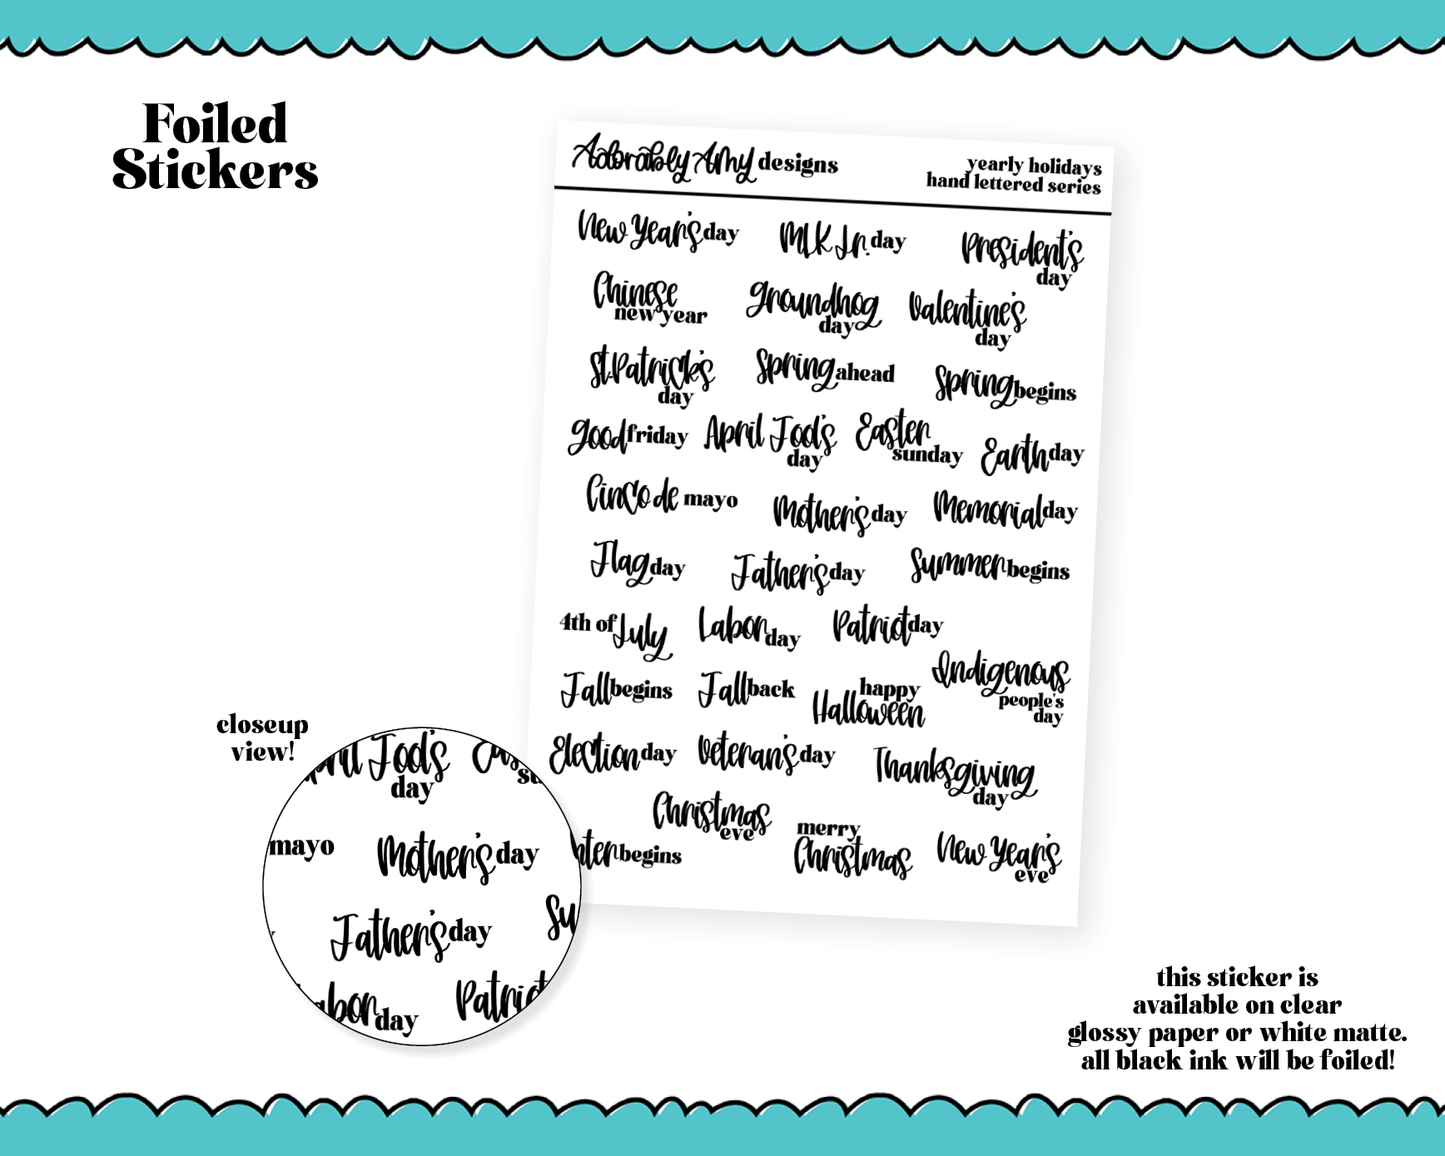 Foiled
Stickers
Adorably Amy designs
yearly holidays
hand lettered series
New Year's day
MLK Jr. day
President's
day
Chinese
new year
groundhog
day
Valentine's
day
St. Patrick's
day
Spring ahead
Spring begins
good friday
April Fool's
day
Easter
sunday
Earth day
Cinco de mayo
Mother's day
Memorial day
Flag day
Father's day
Summer begins
4th of July
Labor day
Patriot day
Indigenous
people's
day
Fall begins
Fall back
happy
Halloween
Election day
Veteran's day
Thanksgiving
day
Christmas
eve
begins
merry
Christmas
New Year's
eve
closeup
view!
April Fool's
day
mayo
Mother's day
Father's day
Su
Labor day
Patriot
this sticker is
available on clear
glossy paper or white matte.
all black ink will be foiled!